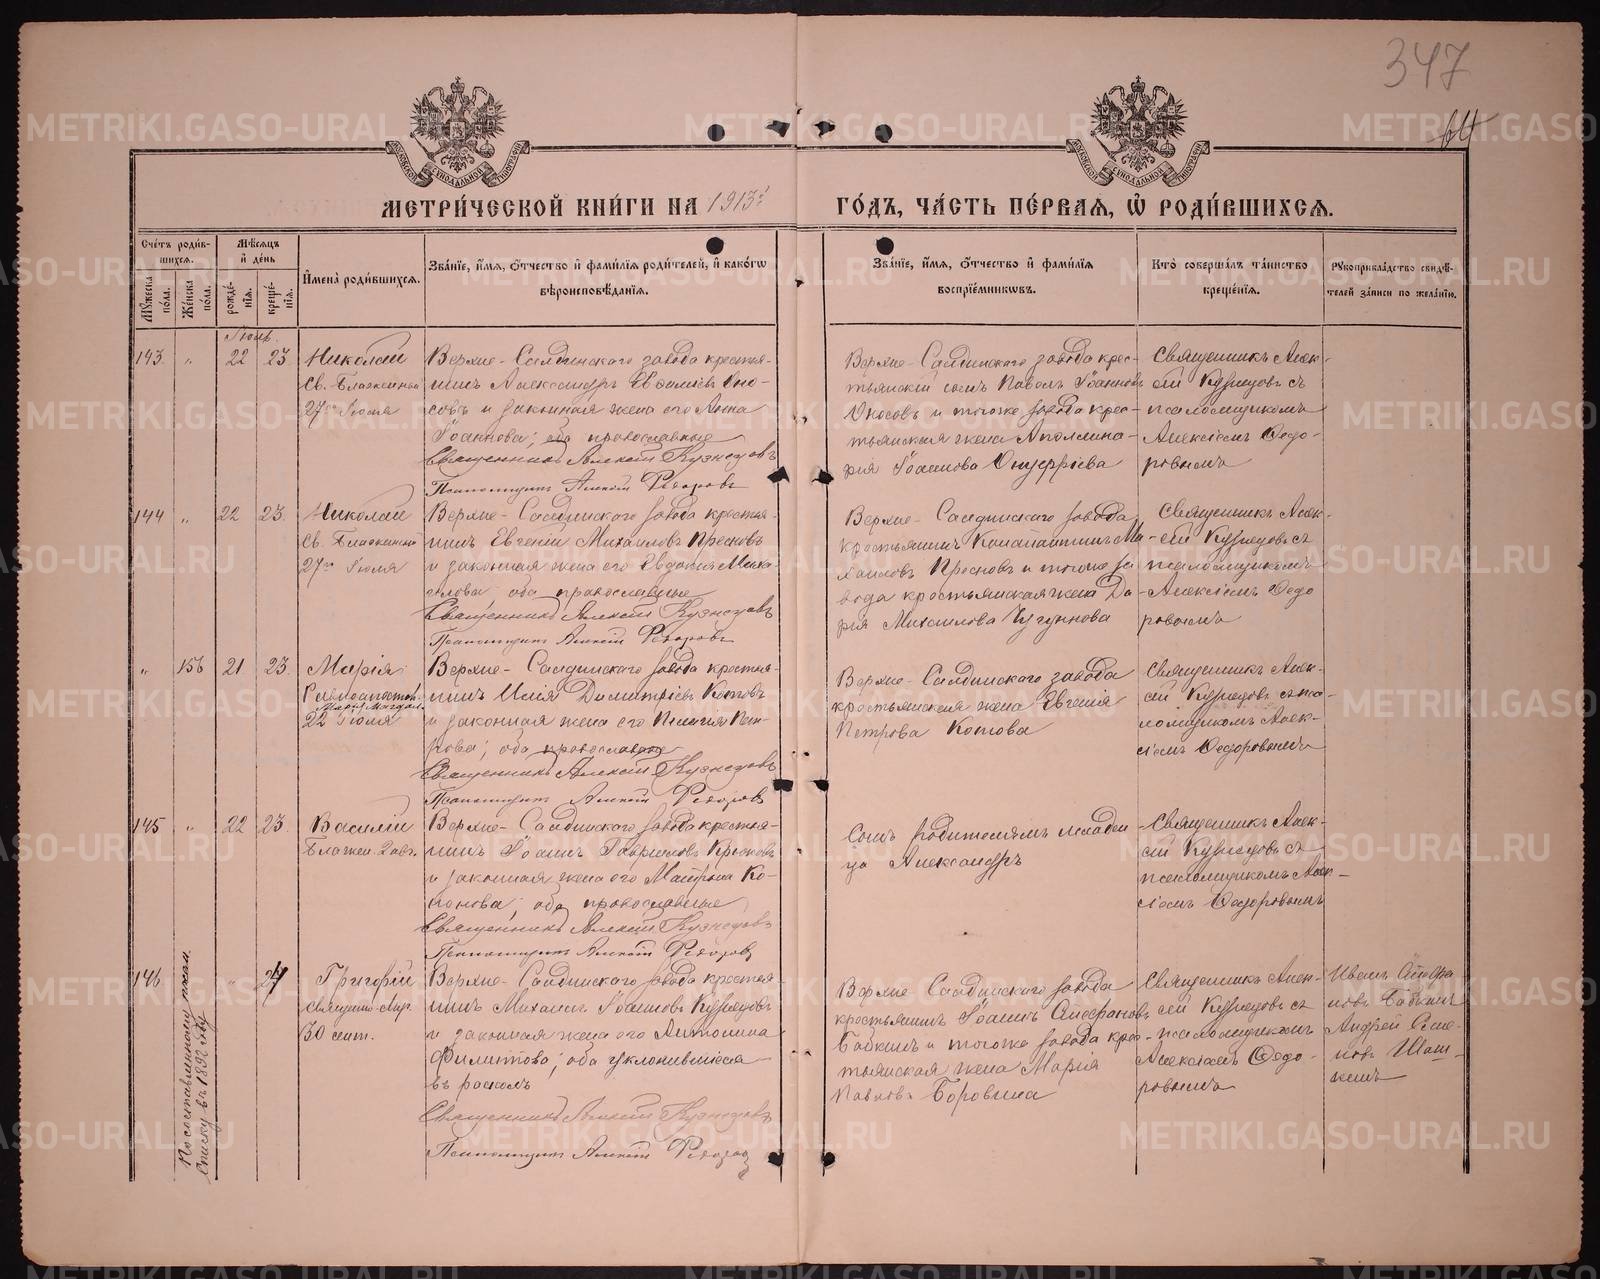 347
64
МЕТРИЧЕСКОЙ КНИГИ НА 1913й
ГОДЪ, ЧАСТЬ ПЕРВАЯ, Ѿ РОДИВШИХСѦ.
Счетъ родившихсѧ.
Мѣсѧцъ и день
Мꙋжеска пола.
Женска пола.
рожденїѧ.
крещенїѧ.
Имена родившихсѧ.
Званїе, имѧ, ѻтчество и фамилїѧ родителей, и какогѡ вѣроисповѣданїѧ.
Званїе, имѧ, ѻтчество и фамилїѧ воспрїемникѡвъ.
Кто совершалъ таинство крещенїѧ.
Рꙋкоприкладство свидѣтелей записи по желанїю.
Іюль
143. " 22 23
Николай
Св. Блаженный
27го Іюля
Верхне-Салдинскаго завода крестья-
нинъ Александръ
и законная жена его Анна
Іоаннова; оба православные
Священникъ Алексій Кузнецовъ
Псаломщикъ Алексій Ѳедоровъ
Верхне-Салдинскаго завода крес-
тьянскій сынъ Павелъ Іоанновъ
и тогоже завода крес-
тьянская жена Аполлина-
рія Іоаннова Онуфріева
Священникъ Алек-
сій Кузнецовъ съ
псаломщикомъ
Алексіемъ Ѳедо-
ровымъ
144 " 22 23.
Николай
Св. Блаженный
27го Іюля
Верхне-Салдинскаго завода крестья-
нинъ Евгеній Михаиловъ Пресновъ
и законная жена его Евдокія Миха-
илова; оба православные
Священникъ Алексій Кузнецовъ
Псаломщикъ Алексій Ѳедоровъ
Верхне-Салдинскаго завода
крестьянинъ Ми-
хаиловъ Пресновъ и тогоже за-
вода крестьянская жена Да-
рія Михаилова Чугунова
Священникъ Алек-
сій Кузнецовъ съ
псаломщикомъ
Алексіемъ Ѳедо
ровымъ
" 156 21 23
Марія
Равноапостол.
Марія Магдал.
22 Іюля
Верхне-Салдинскаго завода крестья-
нинъ Илія Димитріевъ Котовъ
и законная жена его Пелагія Пет-
рова; оба православные
Священникъ Алексій Кузнецовъ
Псаломщикъ Алексій Ѳедоровъ
Верхне-Салдинскаго завода
крестьянская жена Евгенія
Петрова Котова
Священникъ Алек-
сій Кузнецовъ съ пса-
ломщикомъ Алек-
сіемъ Ѳедоровымъ
145 " 22 23.
Василій
Блажен.
Верхне-Салдинскаго завода крестья-
нинъ Іоаннъ Гавриловъ Крюковъ
и законная жена его Матрона Ко-
нонова; оба православные
Священникъ Алексій Кузнецовъ
Псаломщикъ Алексій Ѳедоровъ
родителямъ младен
ца Александръ
Священникъ Алек-
сій Кузнецовъ съ
псаломщикомъ Алек-
сіемъ Ѳедоровымъ
146 " 24
По составленному
списку въ 1892 году
Григорій
Священно-Мур.
30 сент.
Верхне-Салдинскаго завода крестья-
нинъ Михаилъ Іоанновъ Кузнецовъ
и законная жена его Антонина
Филиппова; оба уклонившіеся
въ расколъ
Священникъ Алексій Кузнецовъ
Псаломщикъ Алексій Ѳедоровъ
Верхне Салдинскаго завода
крестьянинъ Іоаннъ
Бабкинъ и тогоже завода крес-
тьянская жена Марія
Павлова Боровина
Священникъ Алек-
сій Кузнецовъ съ
псаломщикомъ
Алексіемъ Ѳедо-
ровымъ
Иванъ
Бабкинъ
Андрей Семе-
новъ
METRIKI.GASO-URAL.RU